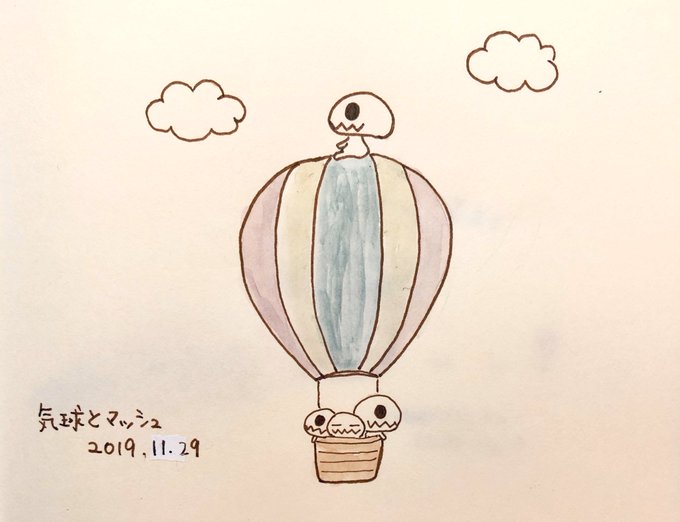 気球とマッシュ
2019.11.29